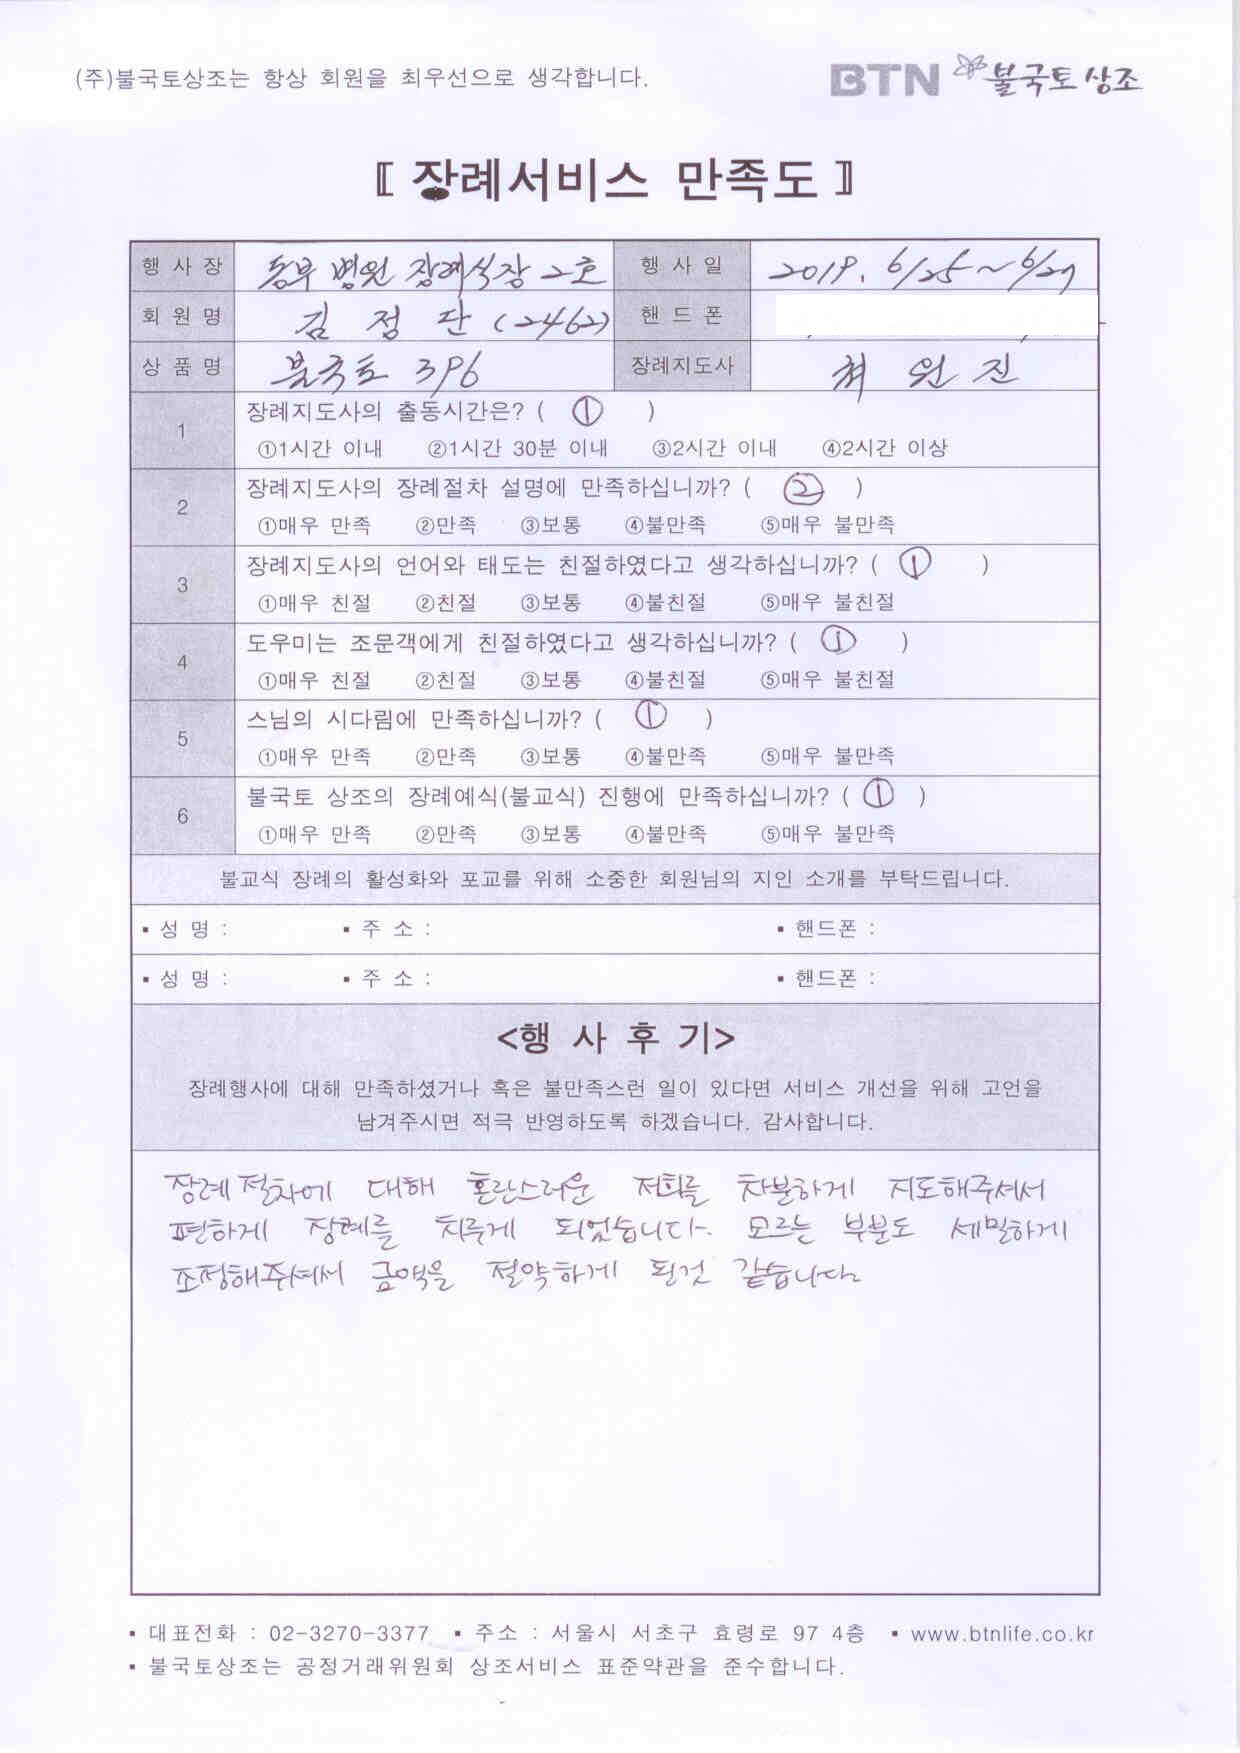 (주)불국토상조는 항상 회원을 최우선으로 생각합니다.
BTN 불국토 상조
〖 장례서비스 만족도 〗
행 사 장 동부 병원 장례식장 2호 행 사 일 2019. 6/25 ~ 6/27
회 원 명 김 정 단 (2462) 핸 드 폰
상 품 명 불국토 396 장례지도사 최 원 진
1 장례지도사의 출동시간은? ( ① )
①1시간 이내 ②1시간 30분 이내 ③2시간 이내 ④2시간 이상
2 장례지도사의 장례절차 설명에 만족하십니까? ( ② )
①매우 만족 ②만족 ③보통 ④불만족 ⑤매우 불만족
3 장례지도사의 언어와 태도는 친절하였다고 생각하십니까? ( ① )
①매우 친절 ②친절 ③보통 ④불친절 ⑤매우 불친절
4 도우미는 조문객에게 친절하였다고 생각하십니까? ( ① )
①매우 친절 ②친절 ③보통 ④불친절 ⑤매우 불친절
5 스님의 시다림에 만족하십니까? ( ① )
①매우 만족 ②만족 ③보통 ④불만족 ⑤매우 불만족
6 불국토 상조의 장례예식(불교식) 진행에 만족하십니까? ( ① )
①매우 만족 ②만족 ③보통 ④불만족 ⑤매우 불만족
불교식 장례의 활성화와 포교를 위해 소중한 회원님의 지인 소개를 부탁드립니다.
▪ 성 명 : ▪ 주 소 : ▪ 핸드폰 :
▪ 성 명 : ▪ 주 소 : ▪ 핸드폰 :
<행 사 후 기>
장례행사에 대해 만족하셨거나 혹은 불만족스런 일이 있다면 서비스 개선을 위해 고언을
남겨주시면 적극 반영하도록 하겠습니다. 감사합니다.
장례 절차에 대해 혼란스러운 저희를 차분하게 지도해주셔서
편하게 장례를 치루게 되었습니다. 모르는 부분도 세밀하게
조정해주셔서 금액을 절약하게 된것 같습니다.
▪ 대표전화 : 02-3270-3377 ▪ 주소 : 서울시 서초구 효령로 97 4층 ▪ www.btnlife.co.kr
▪ 불국토상조는 공정거래위원회 상조서비스 표준약관을 준수합니다.